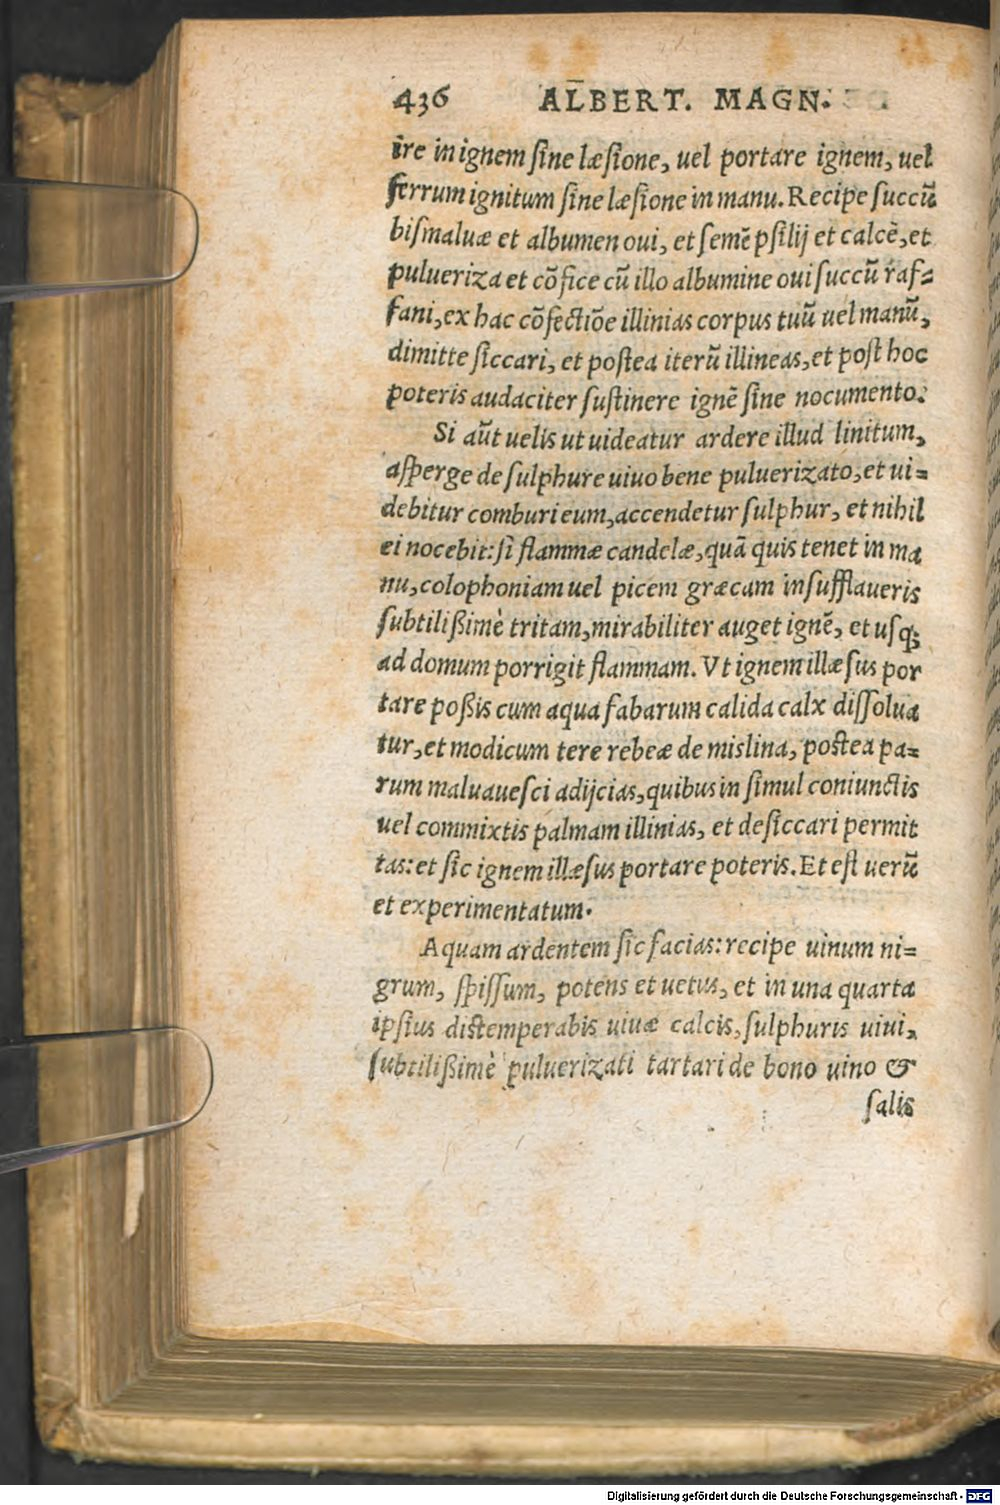 436 ALBERT. MAGN.
ire in ignem ſine læſione, uel portare ignem, uel
ferrum ignitum ſine læſione in manu. Recipe ſuccū
biſmaluæ et albumen oui, et ſemē pſilij et calcē, et
pulueriza et cōfice cū illo albumine oui ſuccū raf=
fani, ex hac cōfectiōe illinias corpus tuū uel manū,
dimitte ſiccari, et poſtea iterū illineas, et poſt hoc
poteris audaciter ſuſtinere ignē ſine nocumento.
Si aūt uelis ut uideatur ardere illud linitum,
aſperge de ſulphure uiuo bene puluerizato, et ui=
debitur comburi eum, accendetur ſulphur, et nihil
ei nocebit: ſi flammæ candelæ, quā quis tenet in ma
nu, colophoniam uel picem græcam inſufflaueris
ſubtilißimè tritam, mirabiliter auget ignē, et uſq;
ad domum porrigit flammam. Vt ignem illæſus por
tare poßis cum aqua fabarum calida calx diſſolua
tur, et modicum tere rebeæ de mislina, poſtea pa=
rum maluaueſci adijcias, quibus in ſimul coniunctis
uel commixtis palmam illinias, et deſiccari permit
tas: et ſic ignem illæſus portare poteris. Et eſt uerū
et experimentatum.
Aquam ardentem ſic facias: recipe uinum ni=
grum, ſpiſſum, potens et uetus, et in una quarta
ipſius diſtemperabis uiuæ calcis, ſulphuris uiui,
ſubtilißimè puluerizati tartari de bono uino &
ſalis
Digitalisierung gefördert durch die Deutsche Forschungsgemeinschaft - DFG